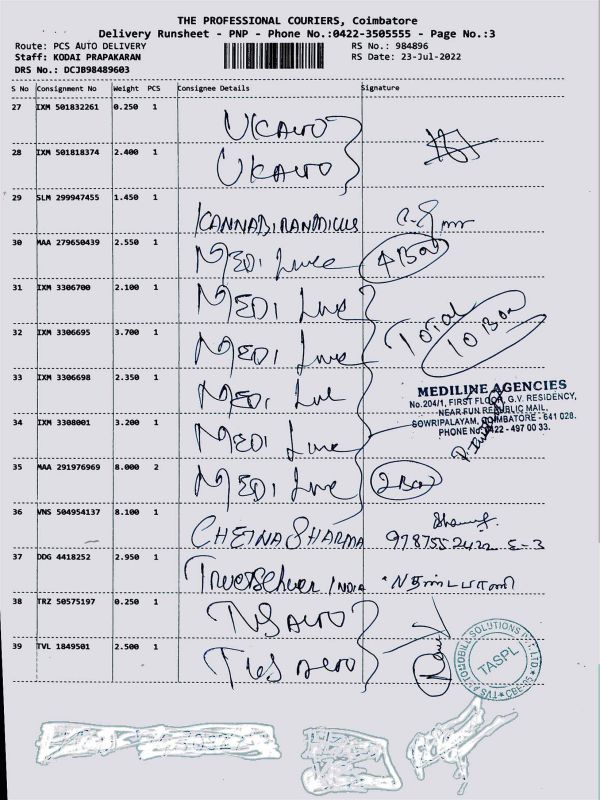 THE PROFESSIONAL COURIERS, Coimbatore
Delivery Runsheet - PNP - Phone No.:0422-3505555 - Page No.:3
Route: PCS AUTO DELIVERY
RS No.: 984896
Staff: KODAI PRAPAKARAN
RS Date: 23-Jul-2022
DRS No.: DCJB98489603
S No Consignment No Weight PCS Consignee Details Signature
27 IXM 501832261 0.250 1 UK AUTO
28 IXM 501818374 2.400 1 UK AUTO
29 SLM 299947455 1.450 1
30 MAA 279650439 2.550 1 MEDI Line 4 Box
31 IXM 3306700 2.100 1 MEDI Line
32 IXM 3306695 3.700 1 MEDI Line Total 10 Box
33 IXM 3306698 2.350 1 MEDI Line
MEDILINE AGENCIES
No.204/1, FIRST FLOOR, G.V. RESIDENCY,
NEAR FUN REPUBLIC MAIL,
SOWRIPALAYAM, COIMBATORE - 641 028.
PHONE No. 0422 - 497 00 33.
34 IXM 3308001 3.200 1 MEDI Line
35 MAA 291976969 8.000 2 MEDI Line 2 Box
36 VNS 504954137 8.100 1 CHETNA SHARMA
37 DDG 4418252 2.950 1 INDIA
38 TRZ 50575197 0.250 1 TVS AUTO
39 TVL 1849501 2.500 1 TVS AUTO
TASPL